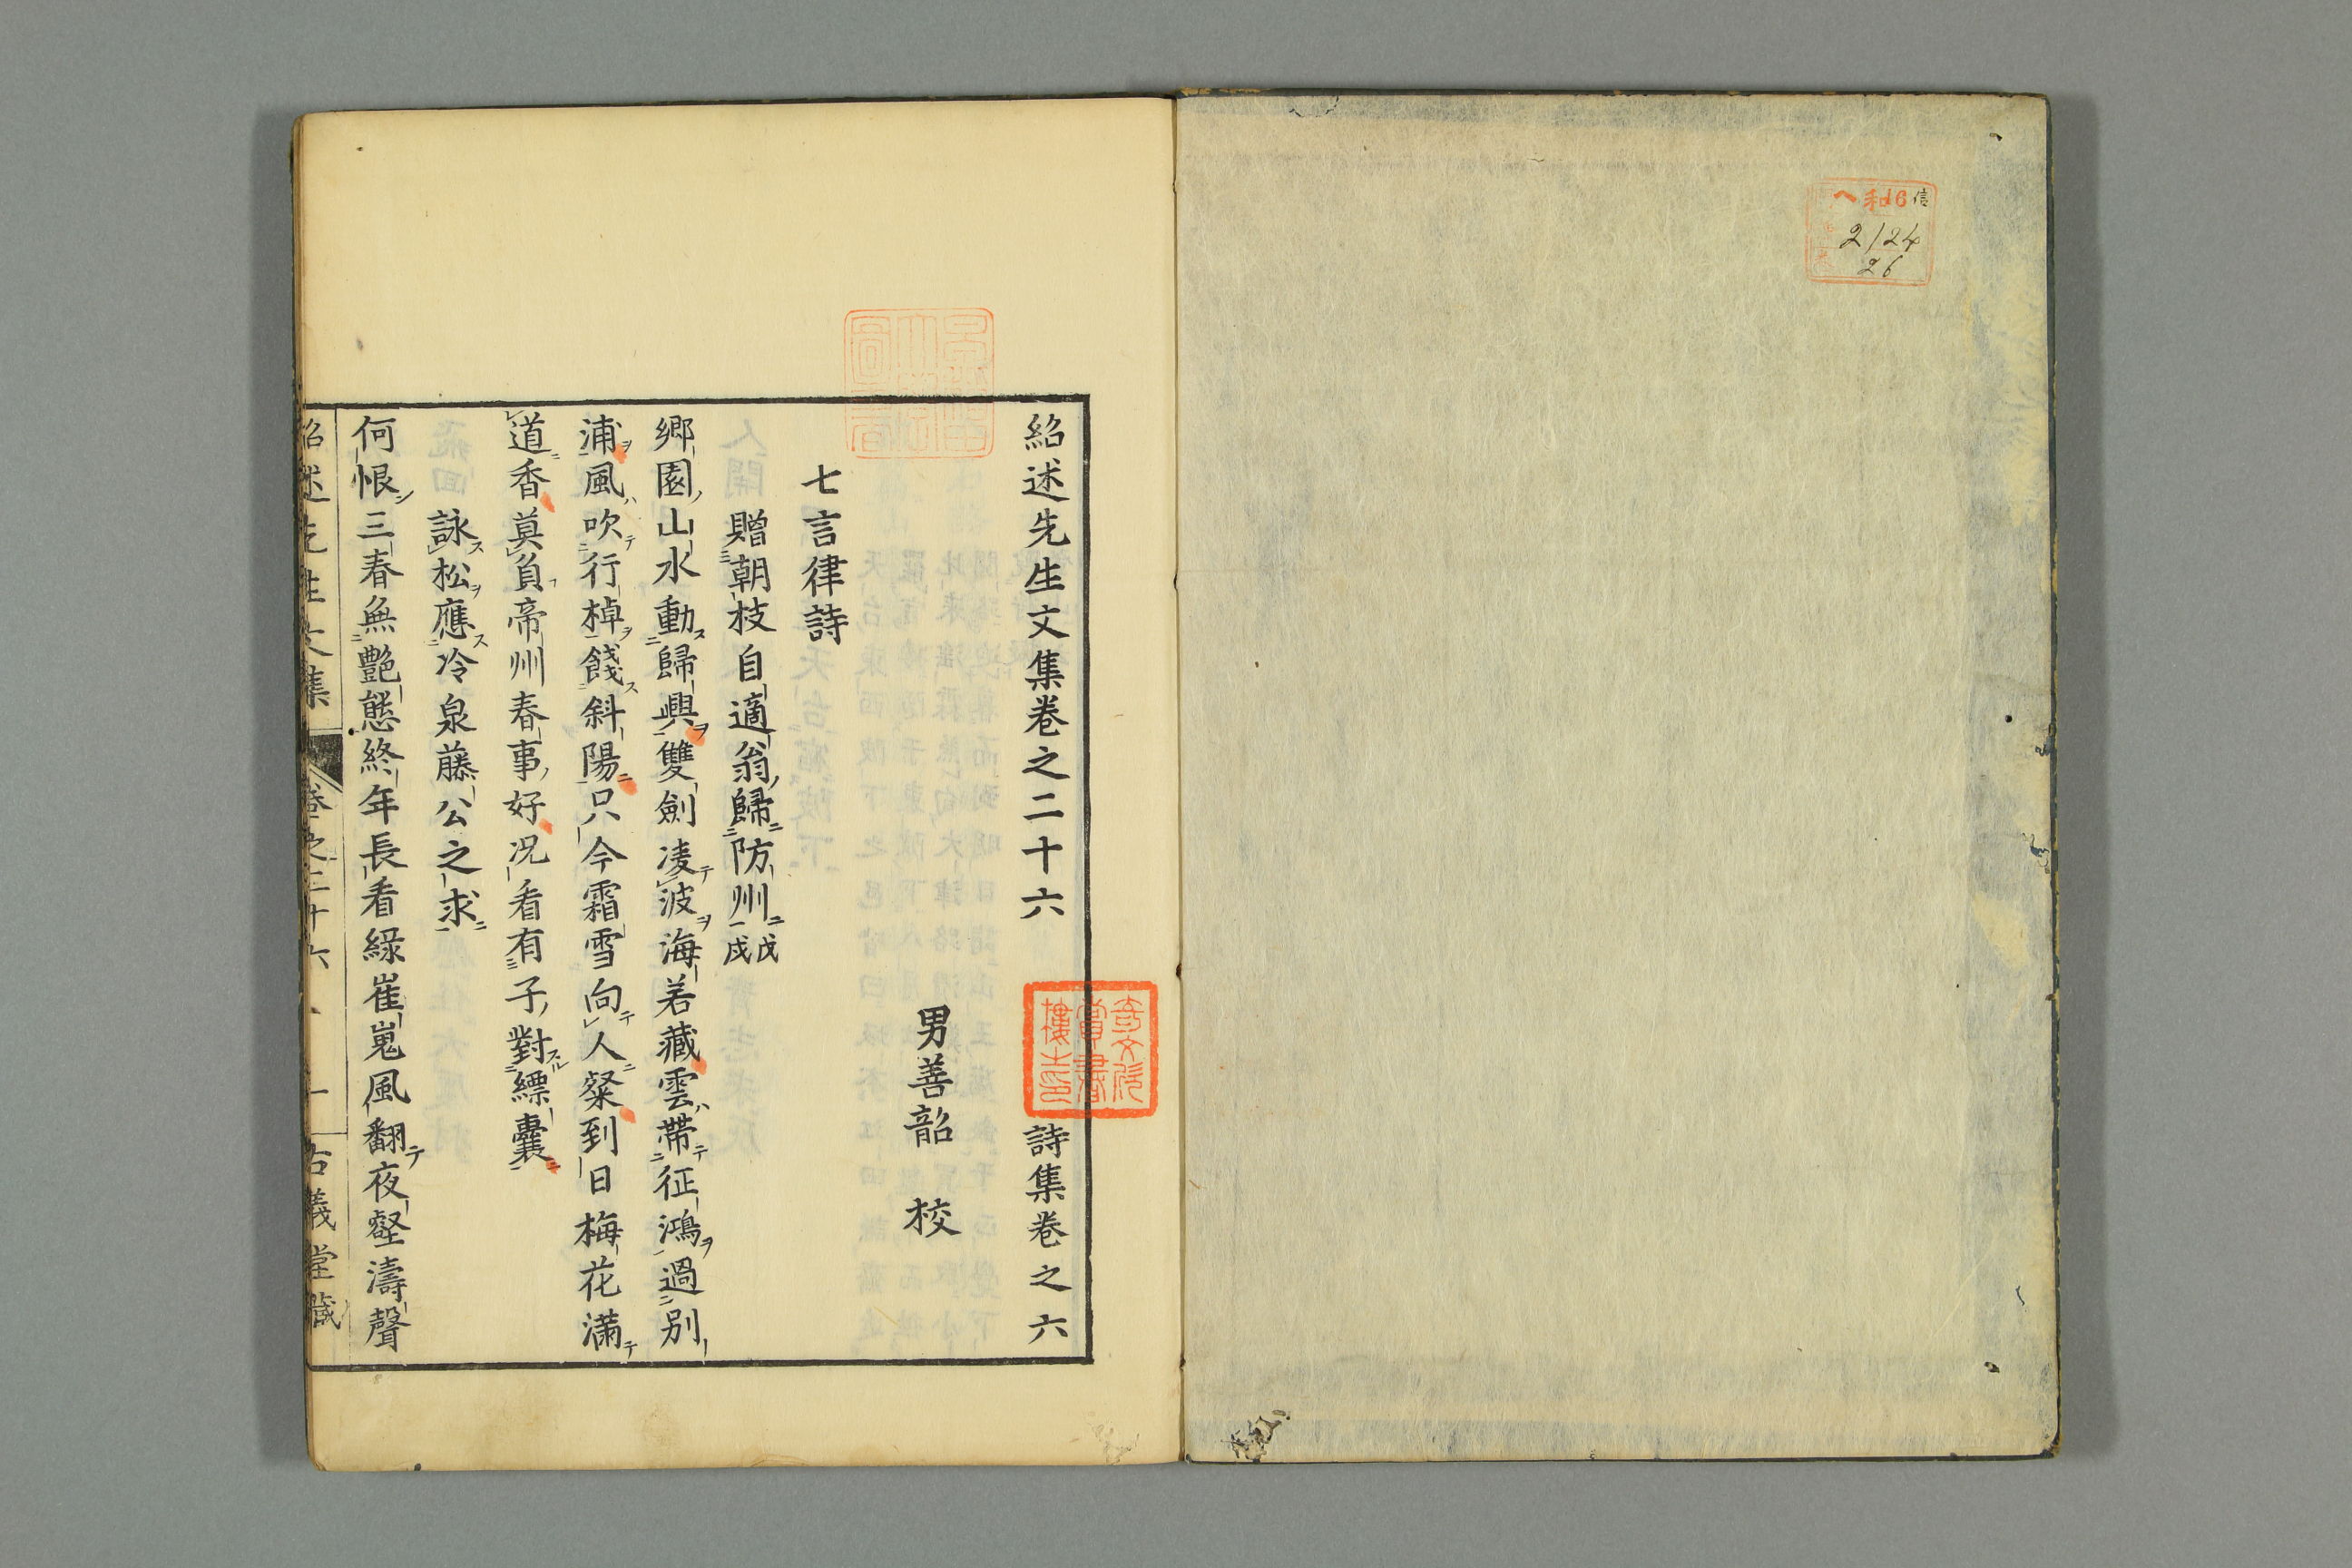 ヘ和16信
2124
26
紹述先生文集卷之二十六　詩集卷之六
男善韶　校
七言律詩
贈朝枝自適翁歸防州戊戌
鄉園山水動歸興雙劍凌波海若藏雲帶征鴻過別
浦風吹行棹餞斜陽只今霜雪向人粲到日梅花滿
道香莫負帝州春事好况看有子對縹囊
詠松應冷泉藤公之求
何恨三春無艷態終年長看綠崔嵬風翻夜壑濤聲
紹述先生文集　卷之二十六　一　古義堂藏